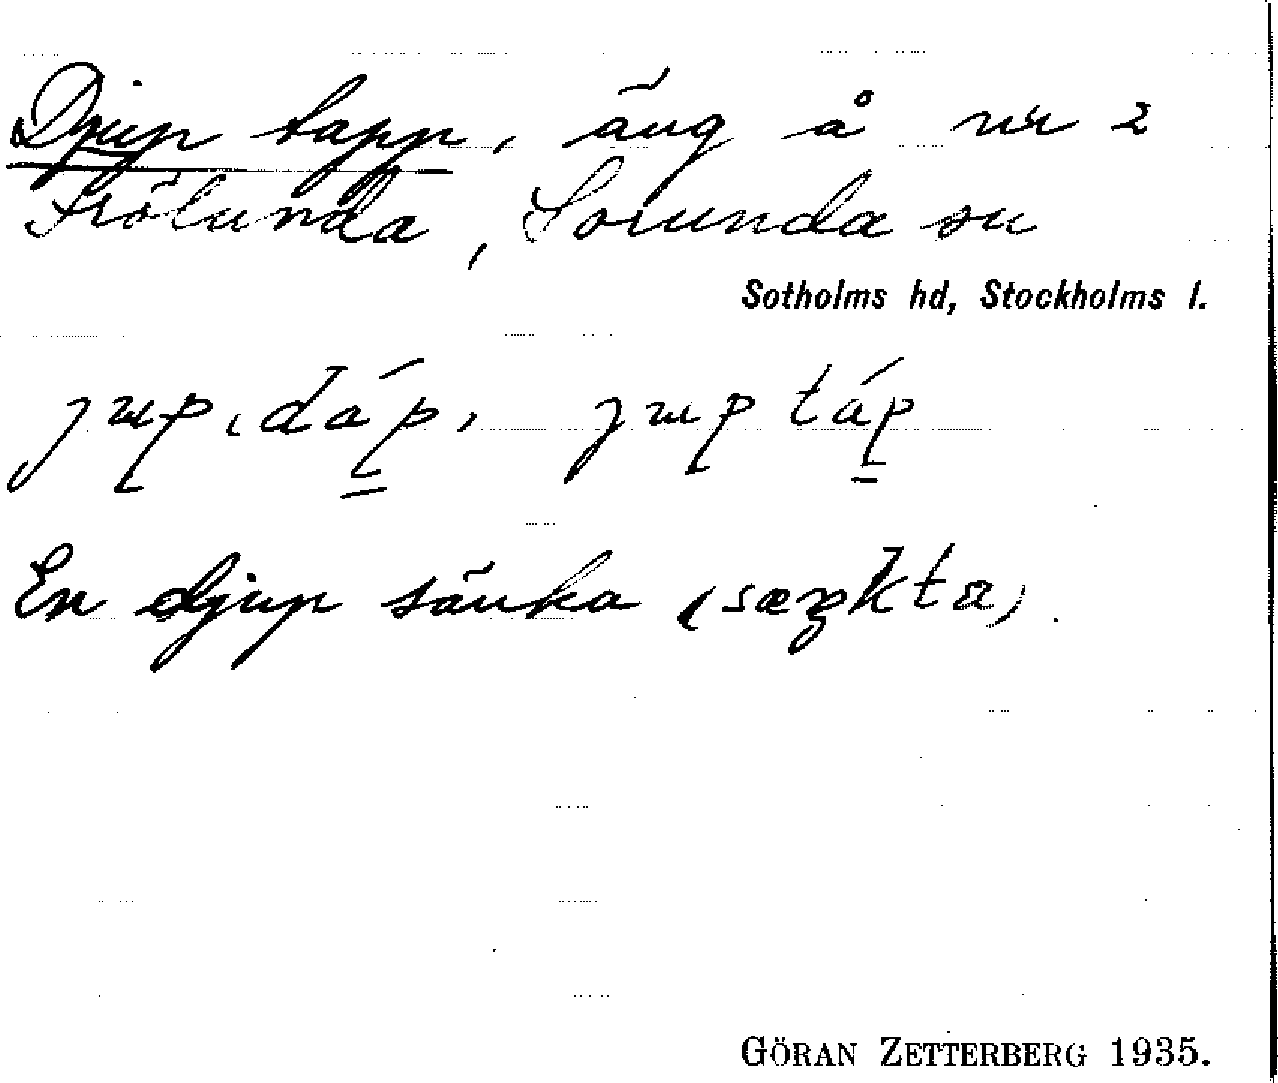 Djup tapp, äng å nr 2
Frölunda, Sorunda sn
Sotholms hd, Stockholms l.
jup, dáp, jup táp
En djup sänka (sæŋkta).
GÖRAN ZETTERBERG 1935.